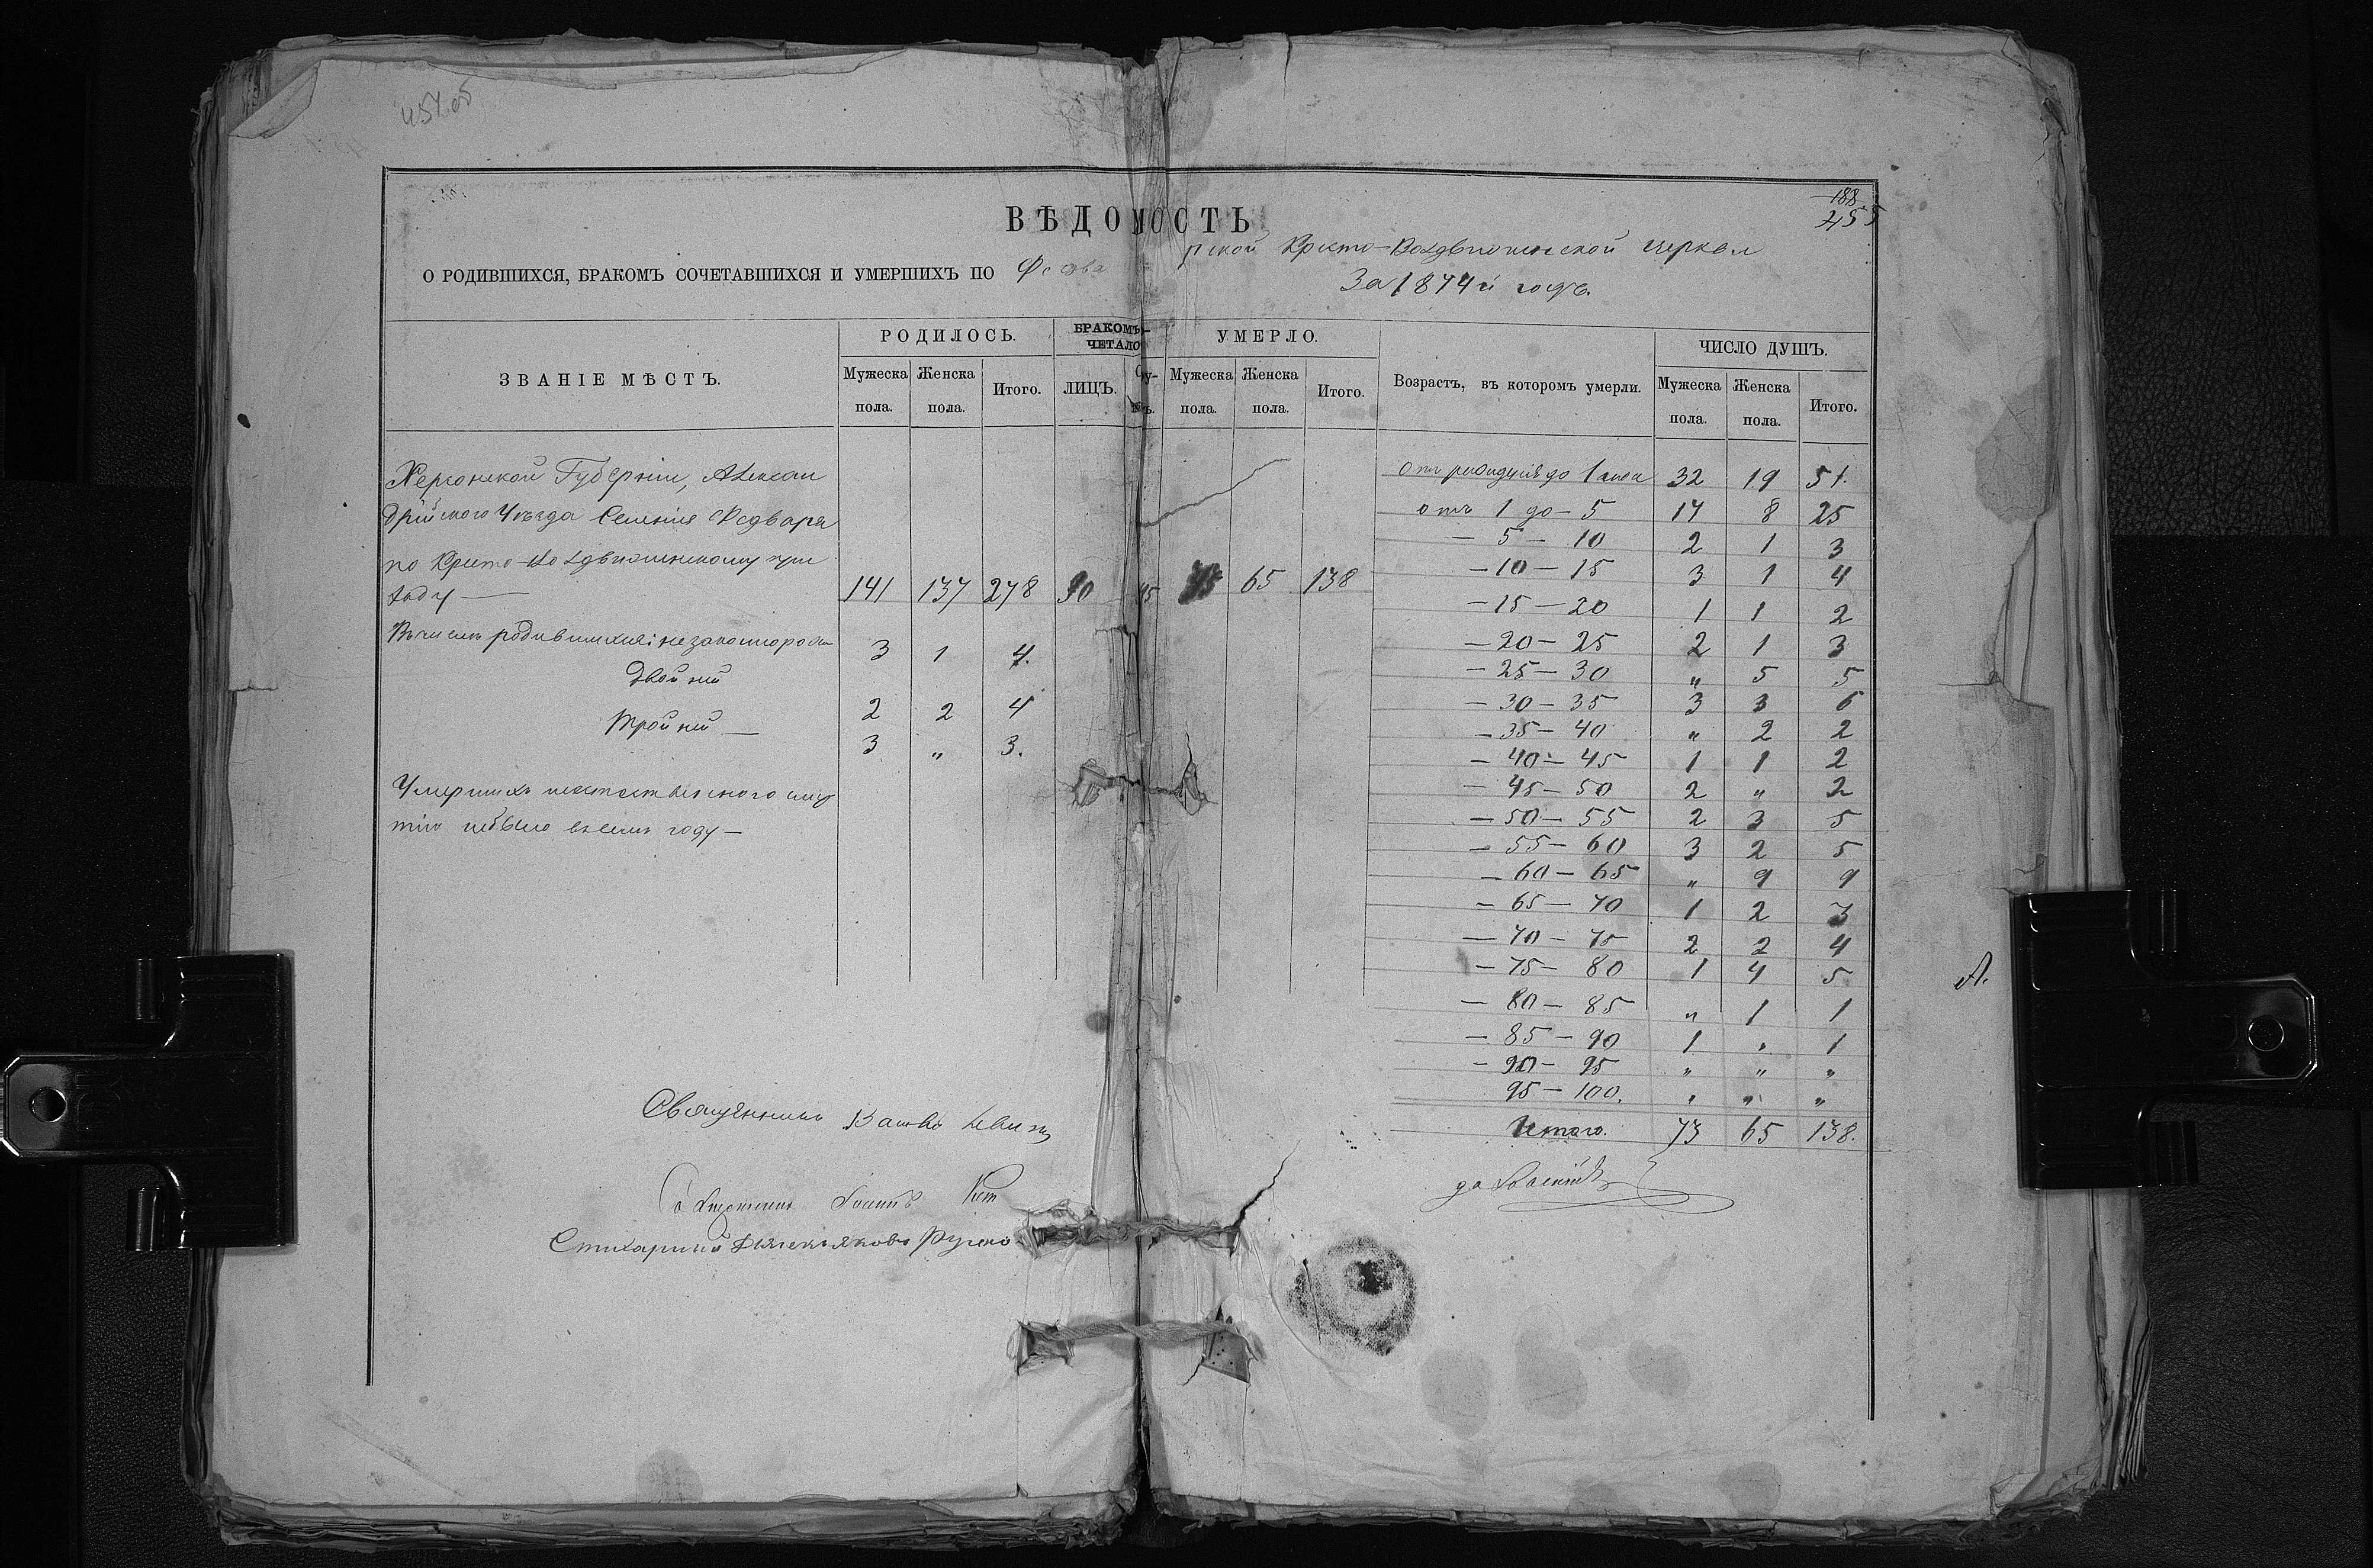 454.об
188
455
ВѢДОМОСТЬ
О РОДИВШИХСЯ, БРАКОМЪ СОЧЕТАВШИХСЯ И УМЕРШИХЪ ПО Федва рской Кресто-Воздвиженской церкви
За 1874й годъ.
ЗВАНІЕ МѢСТЪ. РОДИЛОСЬ. БРАКОМЪ ЧЕТАЛО УМЕРЛО. Возрастъ, въ которомъ умерли. ЧИСЛО ДУШЪ.
Мужеска пола. Женска пола. Итого. ЛИЦЪ. Мужеска пола. Женска пола. Итого. Мужеска пола. Женска пола. Итого.
Херсонской Губерніи, Алексан
дрійского Уѣзда Селенія Федвара
по Кресто-Воздвиженскому при
ходу — 141 137 278 90 45 73 65 138
Въ числѣ родившихся: незаконнорож 3 1 4.
Двойни 2 2 4
Тройни — 3 „ 3.
Умершихъ неестественного смер
тію небыло в семъ году —
отъ рожденія до 1 года 32 19 51.
отъ 1 до — 5 17 8 25
— 5 — 10 2 1 3
— 10 — 15 3 1 4
— 15 — 20 1 1 2
— 20 — 25 2 1 3
— 25 — 30 „ 5 5
— 30 — 35 3 3 6
— 35 — 40 „ 2 2
— 40 — 45 1 1 2
— 45 — 50 2 „ 2
— 50 — 55 2 3 5
— 55 — 60 3 2 5
— 60 — 65 „ 9 9
— 65 — 70 1 2 3
— 70 — 75 2 2 4
— 75 — 80 1 4 5
— 80 — 85 „ 1 1
— 85 — 90 1 „ 1
— 90 — 95 „ „ „
95 — 100. „ „ „
Итого. 73 65 138.
Священникъ
Іоаннъ
Стихарный